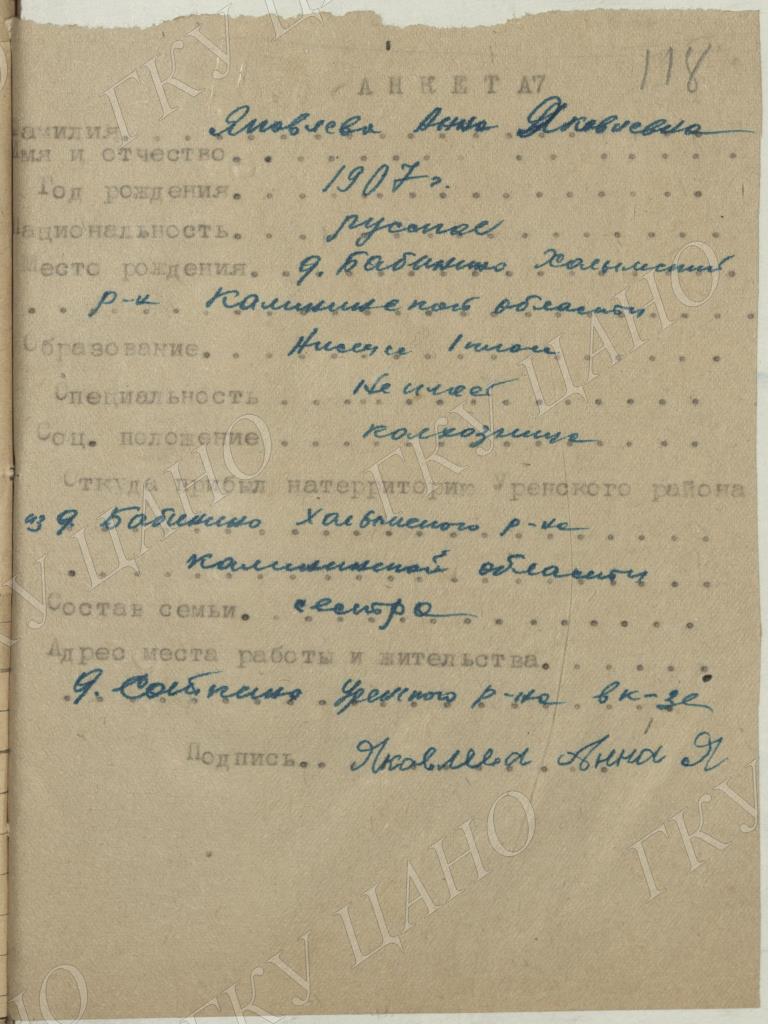 118
АНКЕТА
Фамилия. Яковлева Анна Яковлевна
Имя и отчество.
Год рождения. 1907 г.
Национальность. русская
Место рождения. д. Бабинино Холмский
р-н Калининской области
Образование. Низшее
Специальность Не имеет
Соц. положение колхозница
Откуда прибыл натерриторию Уренского района
из д. Бабинино р-на
Калининской области
Состав семьи. сестра
Адрес места работы и жительства.
д. Уренского р-на в к-зе
Подпись.. Яковлева Анна Я
ГКУ ЦАНО